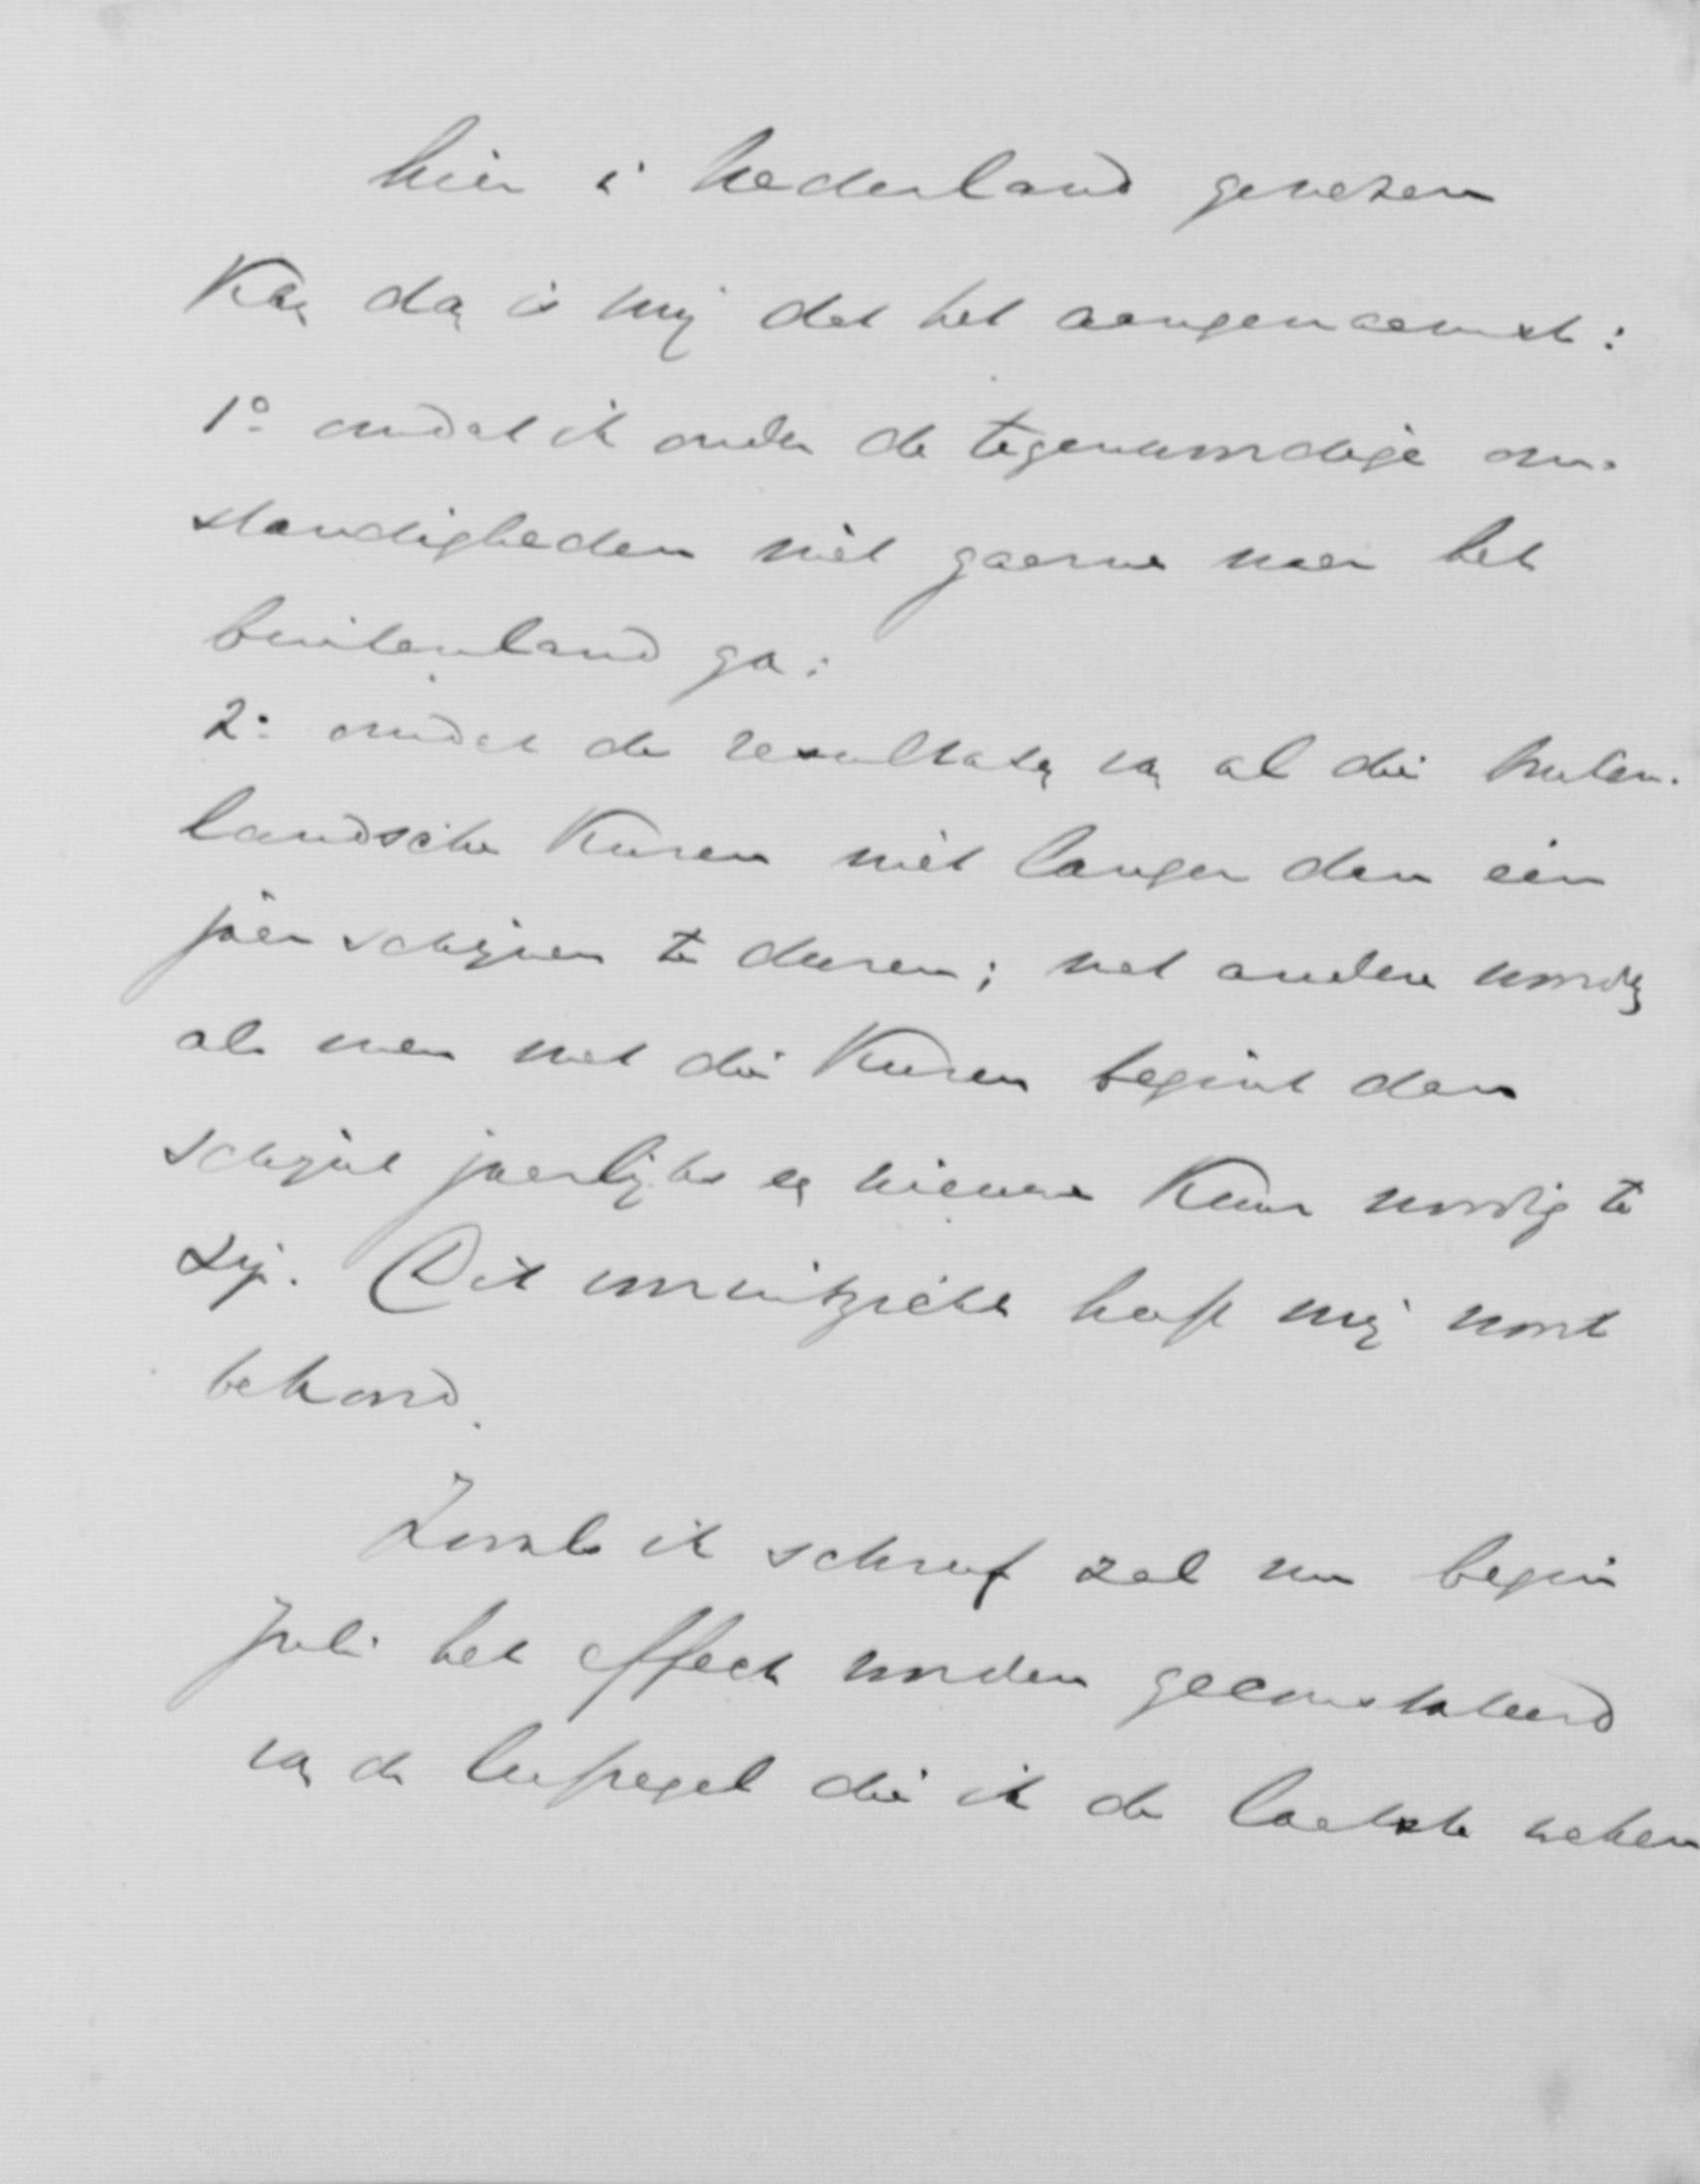 hier in Nederland genezen
kan dan is mij dat het aangenaamst:
1º omdat ik onder de tegenwoordige om-
standigheden niet gaarne naar het
buitenland ga;
2º omdat de resultaten van al die buiten-
landsche Kuren niet langer dan één
jaar schijnen te duren; met andere woorden
als men met die Kuren begint dan
schijnt jaarlijks een nieuwe Kuur noodig te
zijn. Dit vooruitzicht heeft mij nooit
bekoord.
Zooals ik schreef zal nu begin
Juli het effect worden geconstateerd
van de leefregel die ik de laatste weken